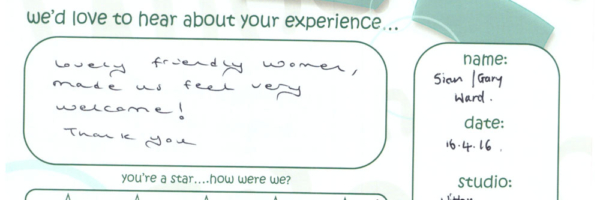 we'd love to hear about your experience...
Lovely friendly women,
made us feel very
welcome!
Thank you
name:
Sian / Gary
Ward.
date:
16.4.16.
studio:
you're a star....how were we?